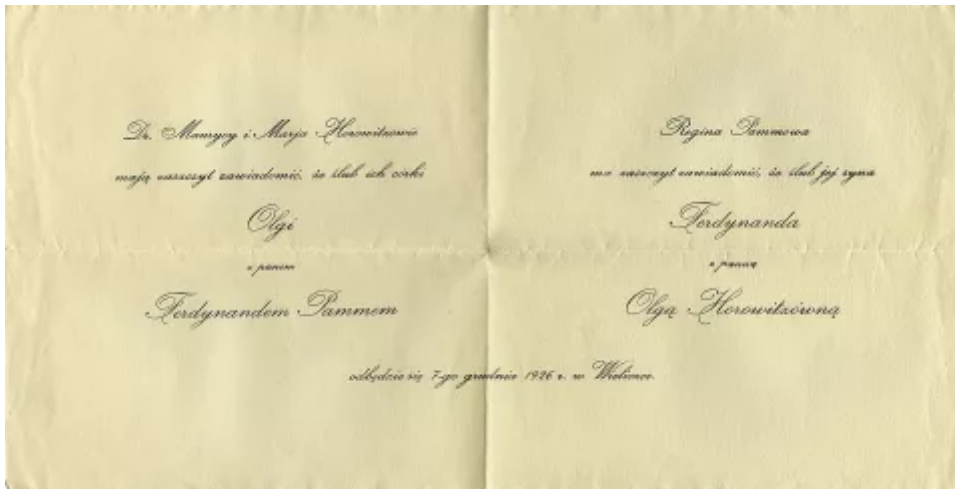 Dr. Maurycy i Marja Horowitzowie
mają zaszczyt zawiadomić, że ślub ich córki
Olgi
z panem
Ferdynandem Pammem
Regina Pammowa
ma zaszczyt zawiadomić, że ślub jej syna
Ferdynanda
z panną
Olgą Horowitzówną
odbędzie się 7-go grudnia 1926 r. w Wieliczce.